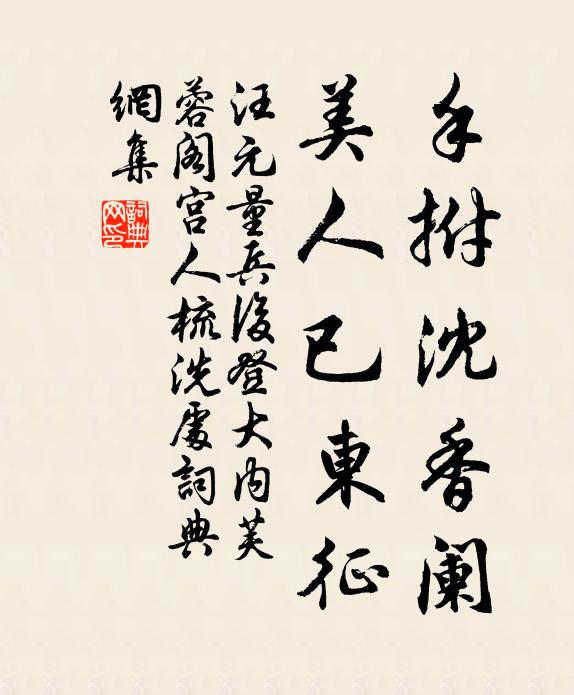 手拊沈香阑
美人已東征
汪元量兵後登大内芙
蓉阁宫人梳洗處詞典
網集
詞典
网印